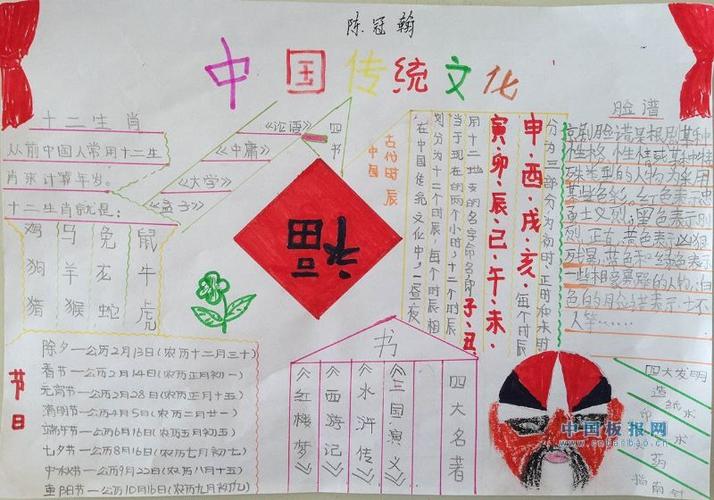 陈冠翰
中国传统文化
十二生肖
从前中国人常用十二生
肖来计算年岁。
十二生肖就是:
鸡 马 兔 鼠
狗 羊 龙 牛
猪 猴 蛇 虎
四书
《论语》
《中庸》
《大学》
《孟子》
福
古代时辰
中国
分为三部分为初时,正时和末时
申·酉·戌·亥,每个时辰
寅·卯·辰·己·午·未·
用十二地支的名字命名即子·丑
当于现在的两个小时,十二个时辰
划分为十二个时辰,每个时辰相
在中国传统文化中,一昼夜
脸谱
京剧脸谱某根剧某种
性格、个性性或某种特
殊类型的人物为采用
某些色彩。红色表示忠
色土义烈;黑色表示刚
烈、正右,黄色表示凶狠
残暴,蓝色和绿色表示
一些
色的月脸谱表示
人等……
节日
除夕一公历2月13日(农历十二月三十)
春节一公历2月14日(农历正月初一)
元宵节一公历2月28日(农历正月十五)
清明节一公历4月5日(农历二月廿)
端午节一公历6月16日(农历五月初五)
七夕节一公历8月16日(农历七月初七)
中秋节一公历9月22日(农历八月十五)
重阳节一公历10月16日(农历九月初九)
书
四大名著
《三国演义》
《水浒传》
《西游记》
《红楼梦》
四大发明
造纸术
印 术
火药
指南针
中国板报网